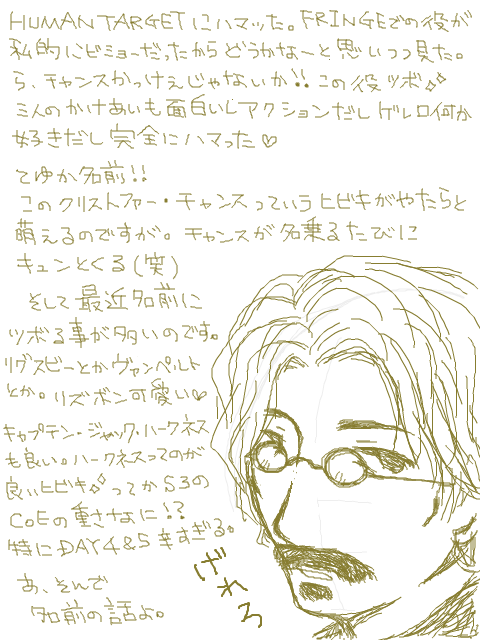 HUMAN TARGETにハマッた。FRINGEでの役が
私的にビミョーだったからどうかな～と思いつつ見た。
ら、チャンスかっけぇじゃないか!!この役ツボ
ミ人のかけあいも面白いしアクションだしゲレロ何か
好きだし完全にハマった♡
てゆか名前!!
このクリストファー・チャンスっていうヒビキがやたらと
萌えるのですが。チャンスが名乗るたびに
キュンとくる(笑)
そして最近名前に
ツボる事が多いのです。
リグスビーとかヴァンペルト
とか。リズボン可愛い♡
キャプテン・ジャック・ハークネス
も良い。ハークネスってのが
良いヒビキ ってかS3の
CoEの重さなに!?
特にDAY4&5辛すぎる。
あ、そんで
名前の話よ。
げれろ